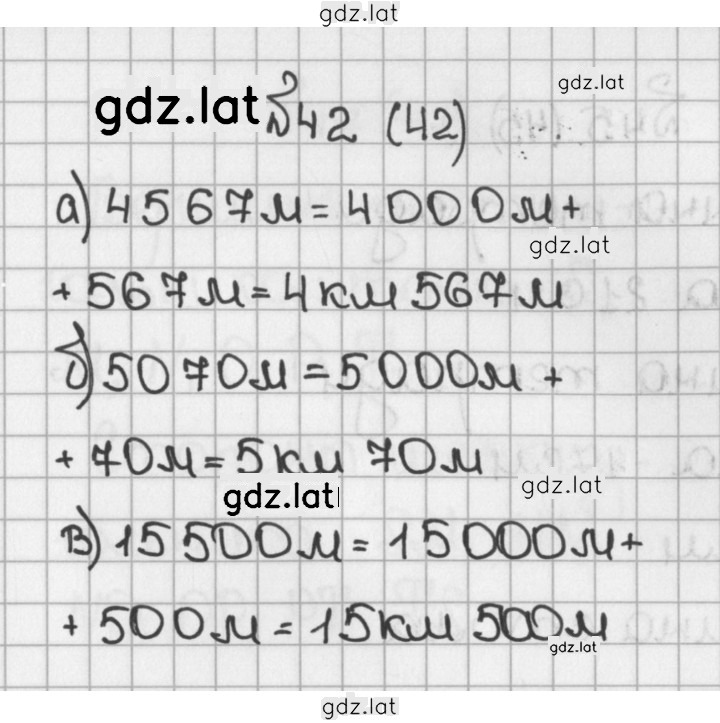 gdz.lat
gdz.lat
gdz.lat №42 (42)
а) 4567м = 4000м +
gdz.lat
+ 567м = 4км 567м
б) 5070м = 5000м +
+ 70м = 5км 70м
gdz.lat
gdz.lat
в) 15500м = 15000м +
+ 500м = 15км 500м
gdz.lat
gdz.lat